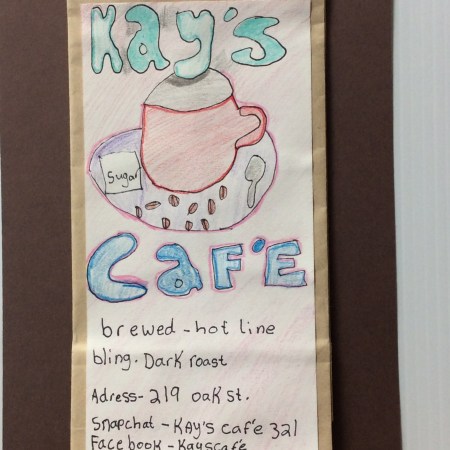 Kay's
Sugar
CaF'E
brewed - hot line
bling. Dark roast
Adress- 219 oak st.
Snapchat - KAY's caf'e 321
Facebook - Kayscafe